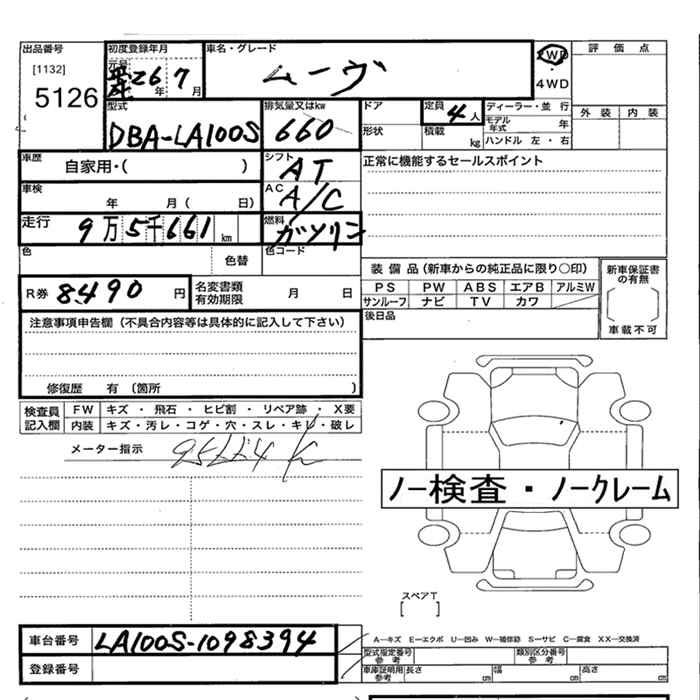 出品番号 初度登録年月 車名・グレード 2WD 評価点
[1132] 元号 26年 7月 ムーヴ ・
5126 4WD
型式 排気量又はkw ドア 定員 4人 ディーラー・並行 外装 内装
DBA-LA100S 660 形状 積載 kg モデル年式 年
ハンドル 左・右
車歴 自家用・( ) シフト AT 正常に機能するセールスポイント
車検 年 月 ( 日) AC A/C
走行 9万5千661km 燃料 ガソリン
色 色替 色コード
装備品(新車からの純正品に限り○印) 新車保証書の有無
R券 8490円 名変書類有効期限 月 日 PS PW ABS エアB アルミW
サンルーフ ナビ TV カワ 車載不可
注意事項申告欄(不具合内容等は具体的に記入して下さい) 後日品
修復歴 有(箇所 )
検査員記入欄 FW キズ・飛石・ヒビ割・リペア跡・X要
内装 キズ・汚レ・コゲ・穴・スレ・キレ・破レ
メーター指示
ノー検査・ノークレーム
スペアT
[ ]
車台番号 LA100S-1098394 A―キズ E―エクボ U―凹み W―補修跡 S―サビ C―腐食 XX―交換済
型式指定番号 参考 類別区分番号 参考
登録番号 車庫証明用 参考 長さ cm 幅 cm 高さ cm